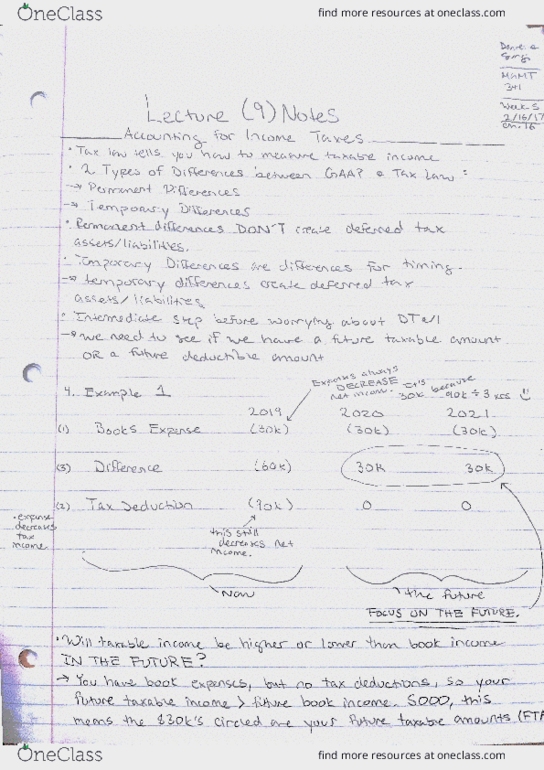 OneClass find more resources at oneclass.com
MGMT
Week 5
2/16/17
Ch. 16
Lecture (9) Notes
Accounting for Income Taxes
• Tax law tells you how to measure taxable income
• 2 Types of Differences between GAAP & Tax Law:
→ Permanent Differences
→ Temporary Differences
• Permanent differences DON'T create deferred tax
assets/liabilities.
• Temporary Differences are differences for timing.
→ temporary differences create deferred tax
assets/liabilities
• Intermediate step before worrying about DTA/l
→ we need to see if we have a future taxable amount
OR a future deductible amount
4. Example 1
Expenses always
DECREASE
net income.
It's because
30k 90k ÷ 3 yrs
2019 2020 2021
(1) Books Expense (30k) (30k) (30k)
(3) Difference (60k) 30k 30k
(2) Tax Deduction (90k) 0 0
• expense
decreases
tax
income
this still
decreases net
income.
Now
the future
FOCUS ON THE FUTURE.
• Will taxable income be higher or lower than book income
IN THE FUTURE?
→ You have book expenses, but no tax deductions, so your
future taxable income > future book income. SOOO, this
means the $30k's circled are your future taxable amounts. (FTA
OneClass find more resources at oneclass.com